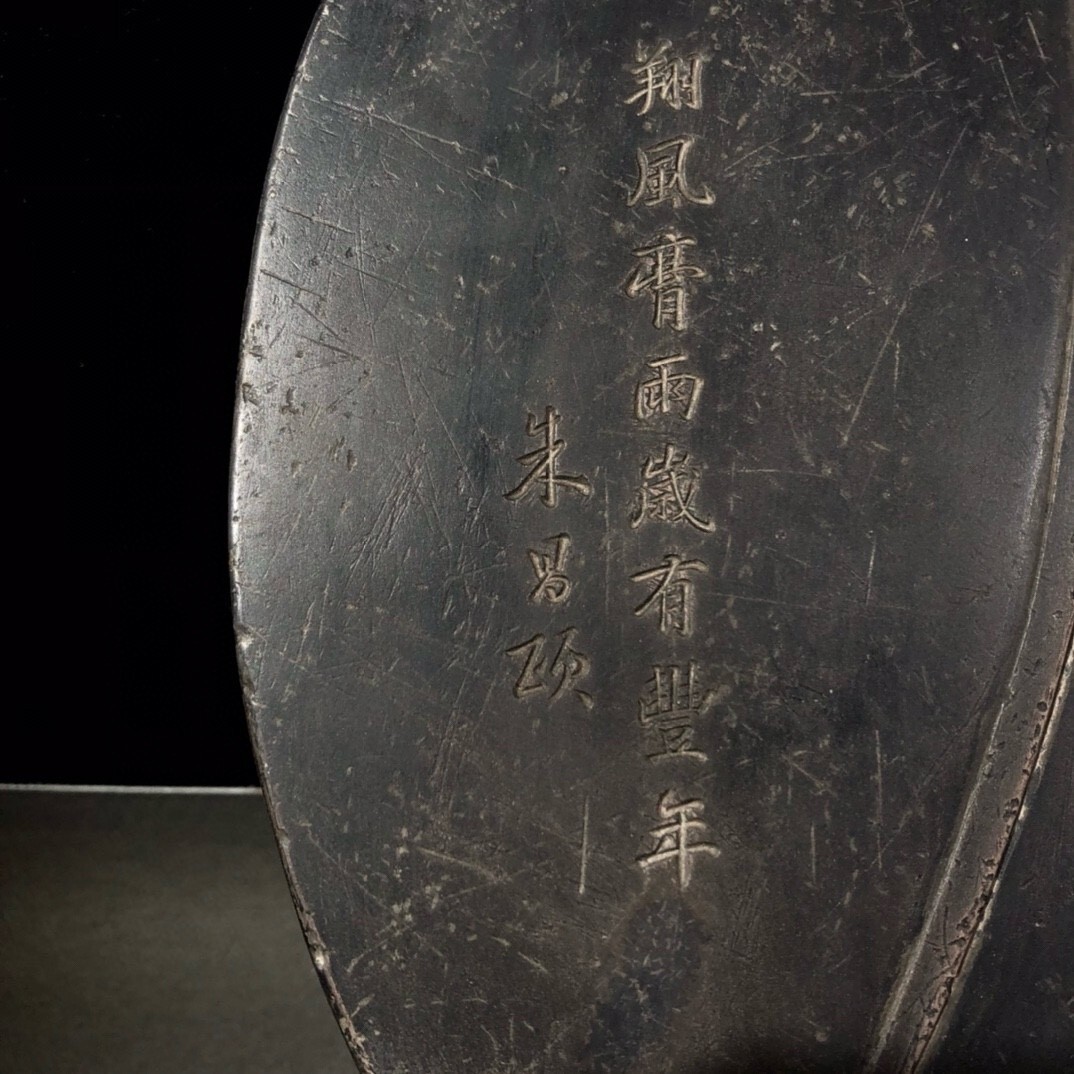 翔風膏雨歲有豐年
朱昌頤